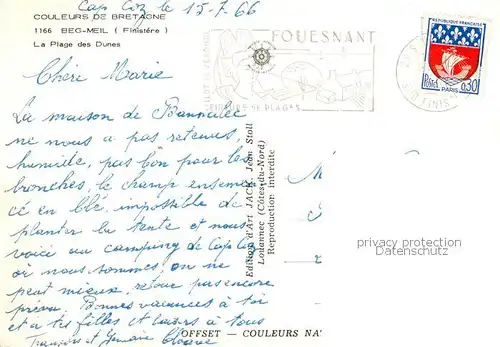 Cap Coz le 15-7.66
COULEURS DE BRETAGNE
1166 BEG-MEIL ( Finistère )
La Plage des Dunes
FOUESNANT
REPUBLIQUE FRANÇAISE
Postes
0,30
PARIS
Chère Marie
La maison de Bannalec
ne nous a pas retenus,
humide, pas bon pour les
bronches, le champ ensemen
cé en blé, impossible de
planter la tente et nous
voici au camping de Cap Coz
où nous sommes, on ne
peut mieux, retour pas encore
prévu. Bonnes vacances à toi
et à tes filles et baisers à tous
François et Germaine
Edition d'Art JACK, Jean Stoll
Lohannec (Côtes-du-Nord)
Reproduction interdite
privacy protection
Datenschutz
OFFSET — COULEURS NA